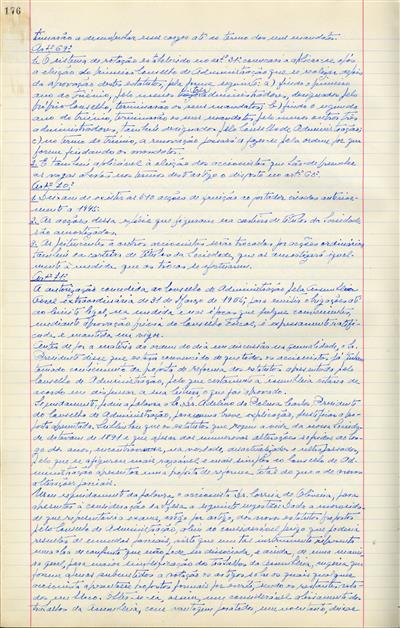 176
tinuarão a desempenhar seus cargos até ao termo dos seus mandatos.
Artº 69º
1. O sistema de rotação estabelecido no artº 31º começará a aplicar-se após
a eleição do primeiro Conselho de Administração que se realizar depois
da aprovação destes estatutos, pela forma seguinte: a) findo o primeiro
ano do triénio, pelo menos três administradores, designados pelo
próprio Conselho, terminarão os seus mandatos; b) findo o segundo
ano do triénio, terminarão os seus mandatos pelo menos outros três
administradores, também designados pelo Conselho de Administração;
c) no termo do triénio, a renovação passará a fazer-se pela ordem por que
forem findando os mandatos.
2. É também aplicável à eleição dos accionistas que hão-de preencher
as vagas abertas nos termos deste artigo o disposto no artº
Artº 70º
1. Deixam de existir as acções de fruição ao portador criadas anterior-
mente a 1945.
2. As acções dessa espécie que figuram na carteira de títulos da Sociedade
são amortizadas.
3. As pertencentes a outros accionistas serão trocadas por acções ordinárias
também da carteira de títulos da Sociedade, que as amortizará igual-
mente à medida que as trocas se efectuarem.
Artº 71º
A autorização concedida ao Conselho de Administração pela Assembleia
Geral extraordinária de 31 de Março de para emitir obrigações até
ao limite legal, na medida e nas épocas que julgue convenientes,
mediante aprovação prévia do Conselho Fiscal, é expressamente ratifi-
cada e mantida em vigor.
Antes de pôr a matéria da ordem do dia em discussão na generalidade, o Sr.
Presidente disse que estava convencido de que todos os accionistas já tinham
tomado conhecimento da proposta de reforma dos estatutos apresentada pelo
Conselho de Administração, pelo que certamente a Assembleia estaria de
acordo em dispensar a sua leitura, o que foi aprovado.
Seguidamente, pediu a palavra o Sr. Adelino da Palma Carlos, Presidente
do Conselho de Administração, para, numa breve explicação, justificar a pro-
posta apresentada. Sublinhou que os estatutos que regem a vida da nossa Companhia
datavam de 1891 e que apesar das numerosas alterações sofridas ao lon-
go dos anos, encontravam-se, na verdade, desactualizados e ultrapassados,
pelo que se afigurou mais razoável e mais simples ao Conselho de Ad-
ministração apresentar uma proposta de reforma total do que a de novas
alterações parciais.
Usou seguidamente da palavra o accionista Sr. Correia de Oliveira, para
apresentar à consideração da Mesa a seguinte sugestão: Dada a morosida-
de que representaria o exame, artigo por artigo, dos novos estatutos propostos
pelo Conselho de Administração, além do considerável perigo que poderia
resultar de emendas parciais, visto que um tal instrumento representa
uma obra de conjunto que não pode ser dissociada, e ainda, de uma manei-
ra geral, para maior simplificação dos trabalhos da Assembleia, sugeria que
fossem apenas submetidos à votação os artigos sobre os quais qualquer
accionista apresentasse propostas formais por escrito, sendo os restantes vota-
dos em bloco. Obter-se-ia, assim, um considerável aliviamento dos
trabalhos da Assembleia, com vantagem